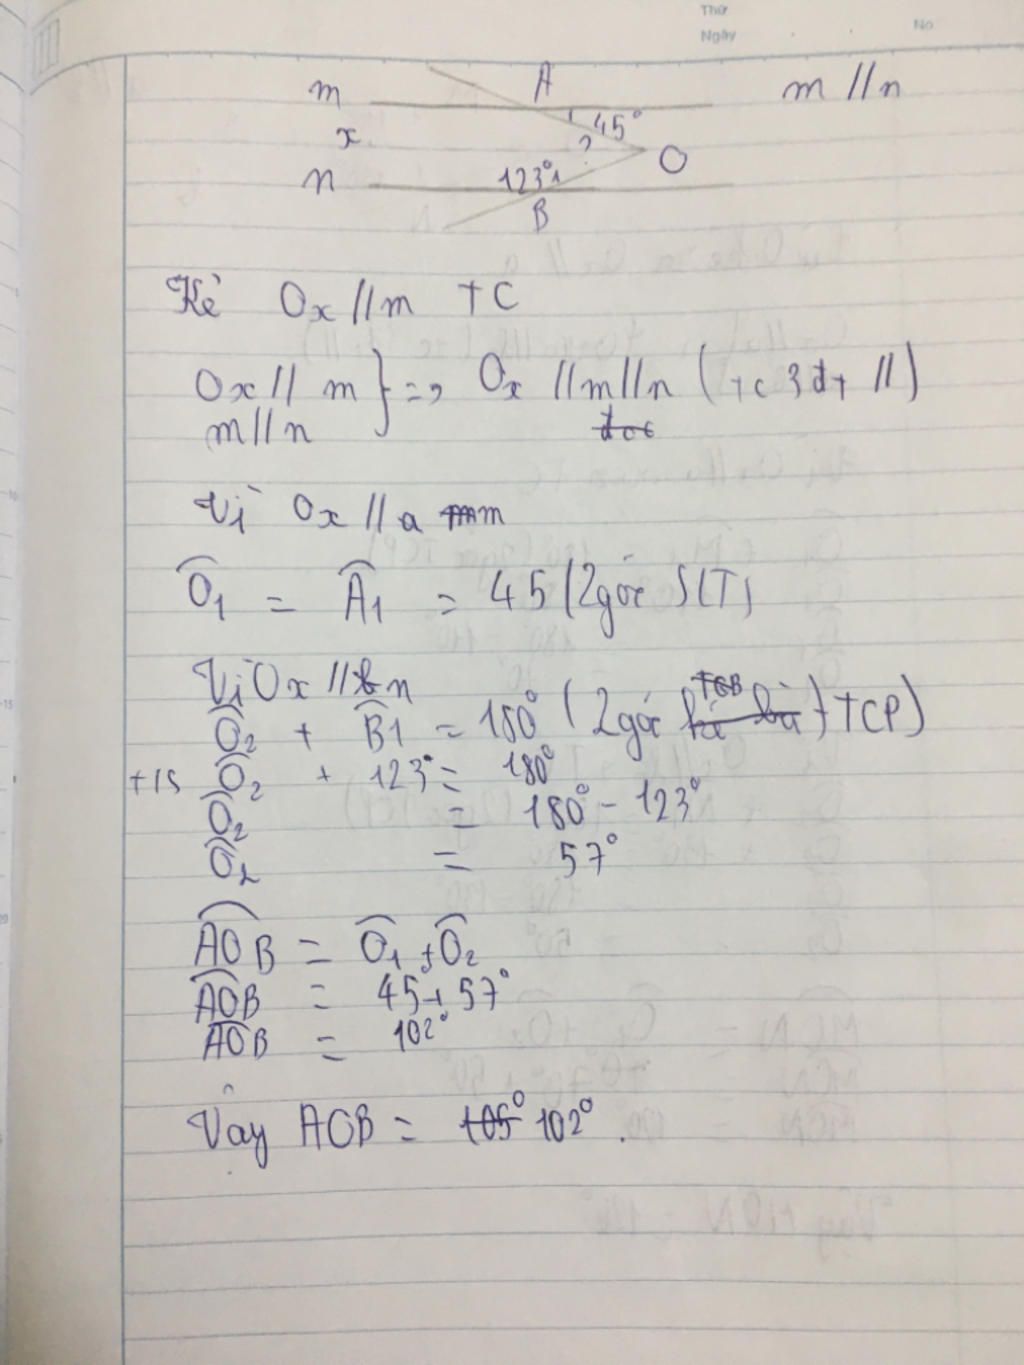 Thứ
Ngày
No
m A m // n
x 1 45°
2 O
n 123° 1
B
Kẻ Ox // m TC
Ox // m } => Ox // m // n ( tc 3 đt // )
m // n
Vì Ox // a m
O1 = A1 = 45 ( 2 góc SLT )
Vì Ox // n
O2 + B1 = 180° ( 2 góc TCP )
O2 + 123° = 180°
O2 = 180° - 123°
O2 = 57°
AOB = O1 + O2
AOB = 45 + 57°
AOB = 102°
Vậy AOB = 105° 102° .